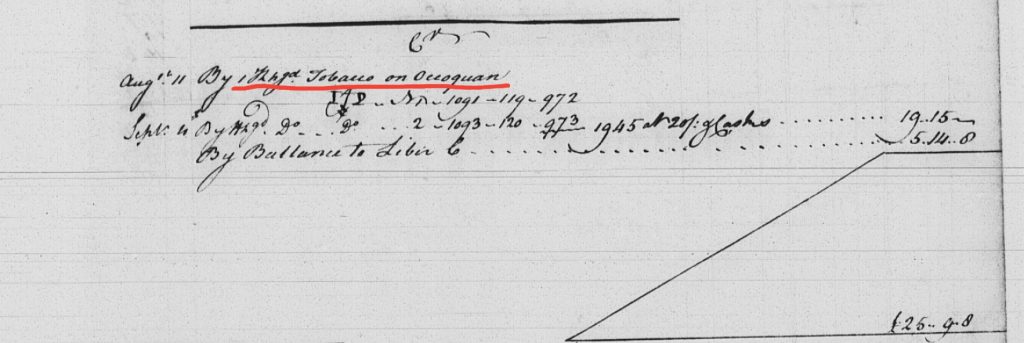 Cr
Augt. 11 By 1 Hhgd Tobacco on Occoquan
No. 1091 - 119 - 972
Sept. 4 By Hhgd. Do. .. Do. .. 2 - 1093 - 120 - 973 1945 at 20/. & Casks ......... 19..15 -
By Ballance to Libir C .................... 5..14..8
£25..9..8